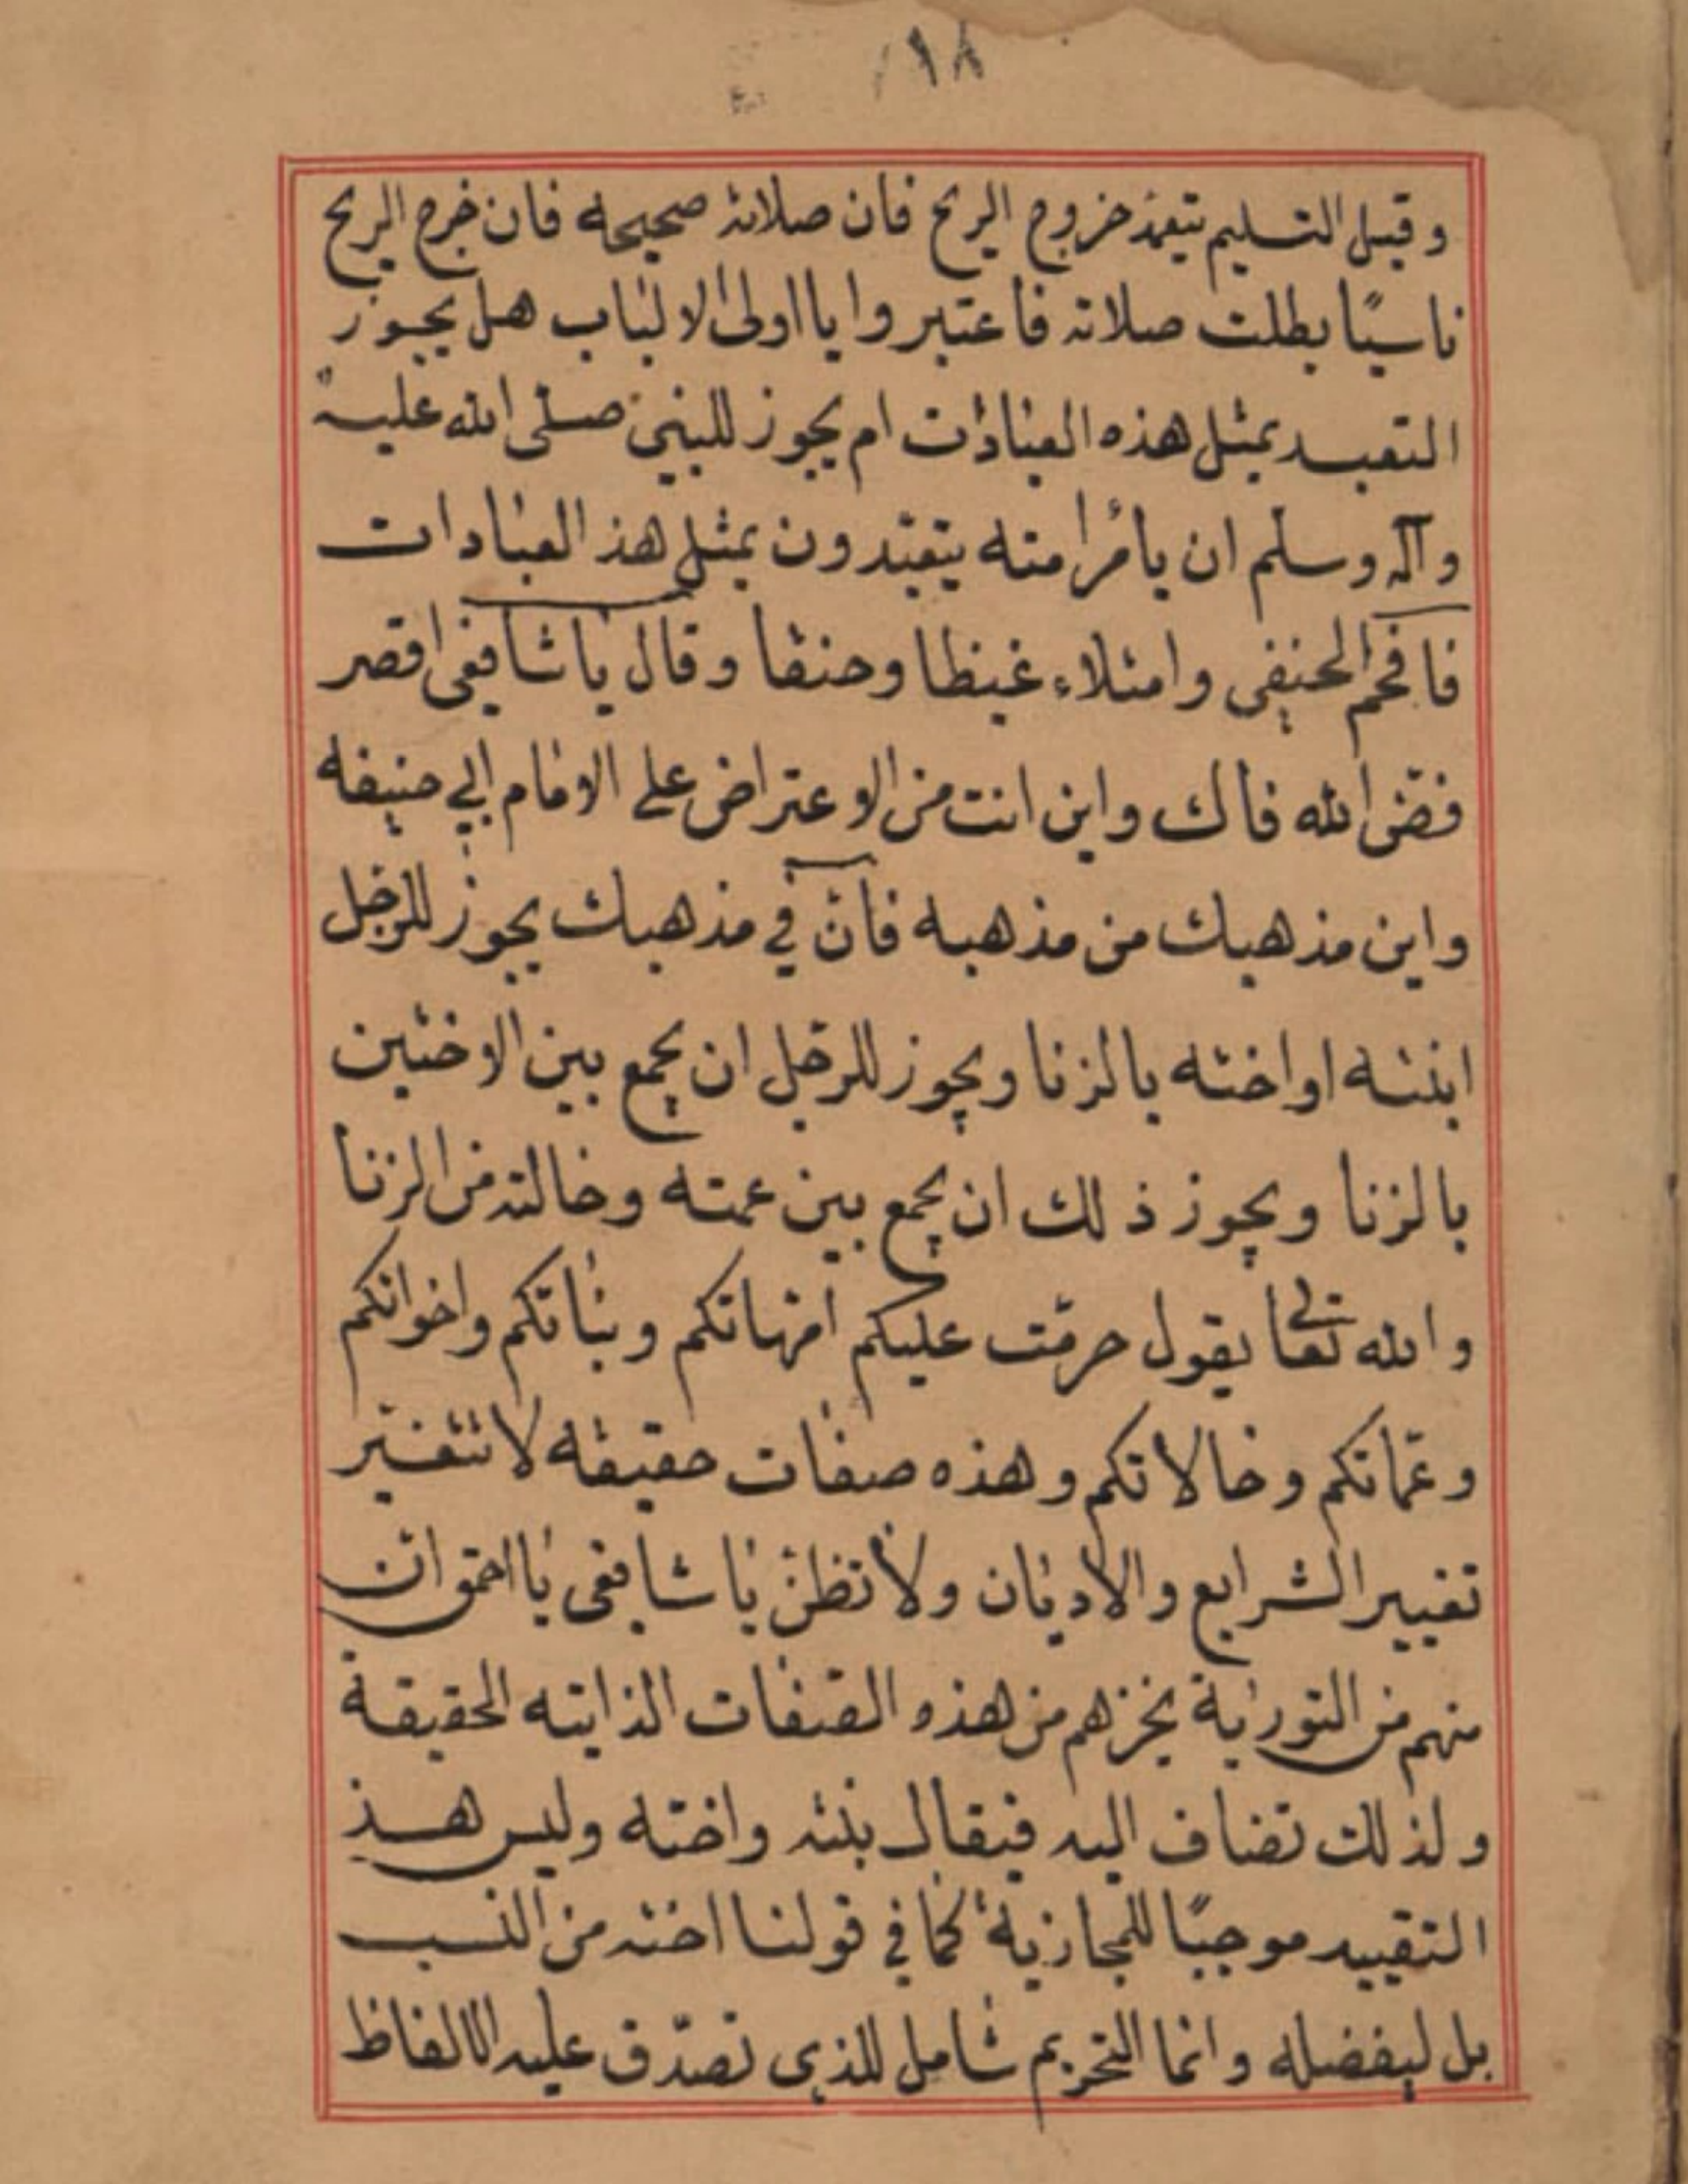 ١٨
وقبل التسليم يتعمد خروج الريح فان صلاته صحيحه فان خرج الريح
ناسيًا بطلت صلاته فاعتبروا يا اولى الالباب هل يجوز
التعبد بمثل هذه العبادات ام يجوز للنبي صلى الله عليه
وآله وسلم ان يامر امته يتعبدون بمثل هذ العبادات
فافحم الحنفي وامتلاء غيظا وحنقا وقال يا شافعي اقصر
فضى الله فاك واين انت من الاعتراض على الامام ابي حنيفه
واين مذهبك من مذهبه فان في مذهبك يجوز للرجل
ابنته او اخته بالزنا ويجوز للرجل ان يجمع بين الاختين
بالزنا ويجوز ذلك ان يجمع بين عمته وخالته من الزنا
والله تعالى يقول حرمت عليكم امهاتكم وبناتكم واخواتكم
وعماتكم وخالاتكم وهذه صفات حقيقه لا تتغير
تغيير الشرايع والاديان ولا تظن يا شافعى يا احمق ان
منهم من التوراية يخزهم من هذه الصفات الذاتيه الحقيقة
ولذلك تضاف اليه فيقال بنته واخته وليس هذ
التقييد موجبًا للمجازية كما في قولنا اخته من النسب
بل ليفضله وانما التحريم شامل للذي تصدق عليه الالفاظ